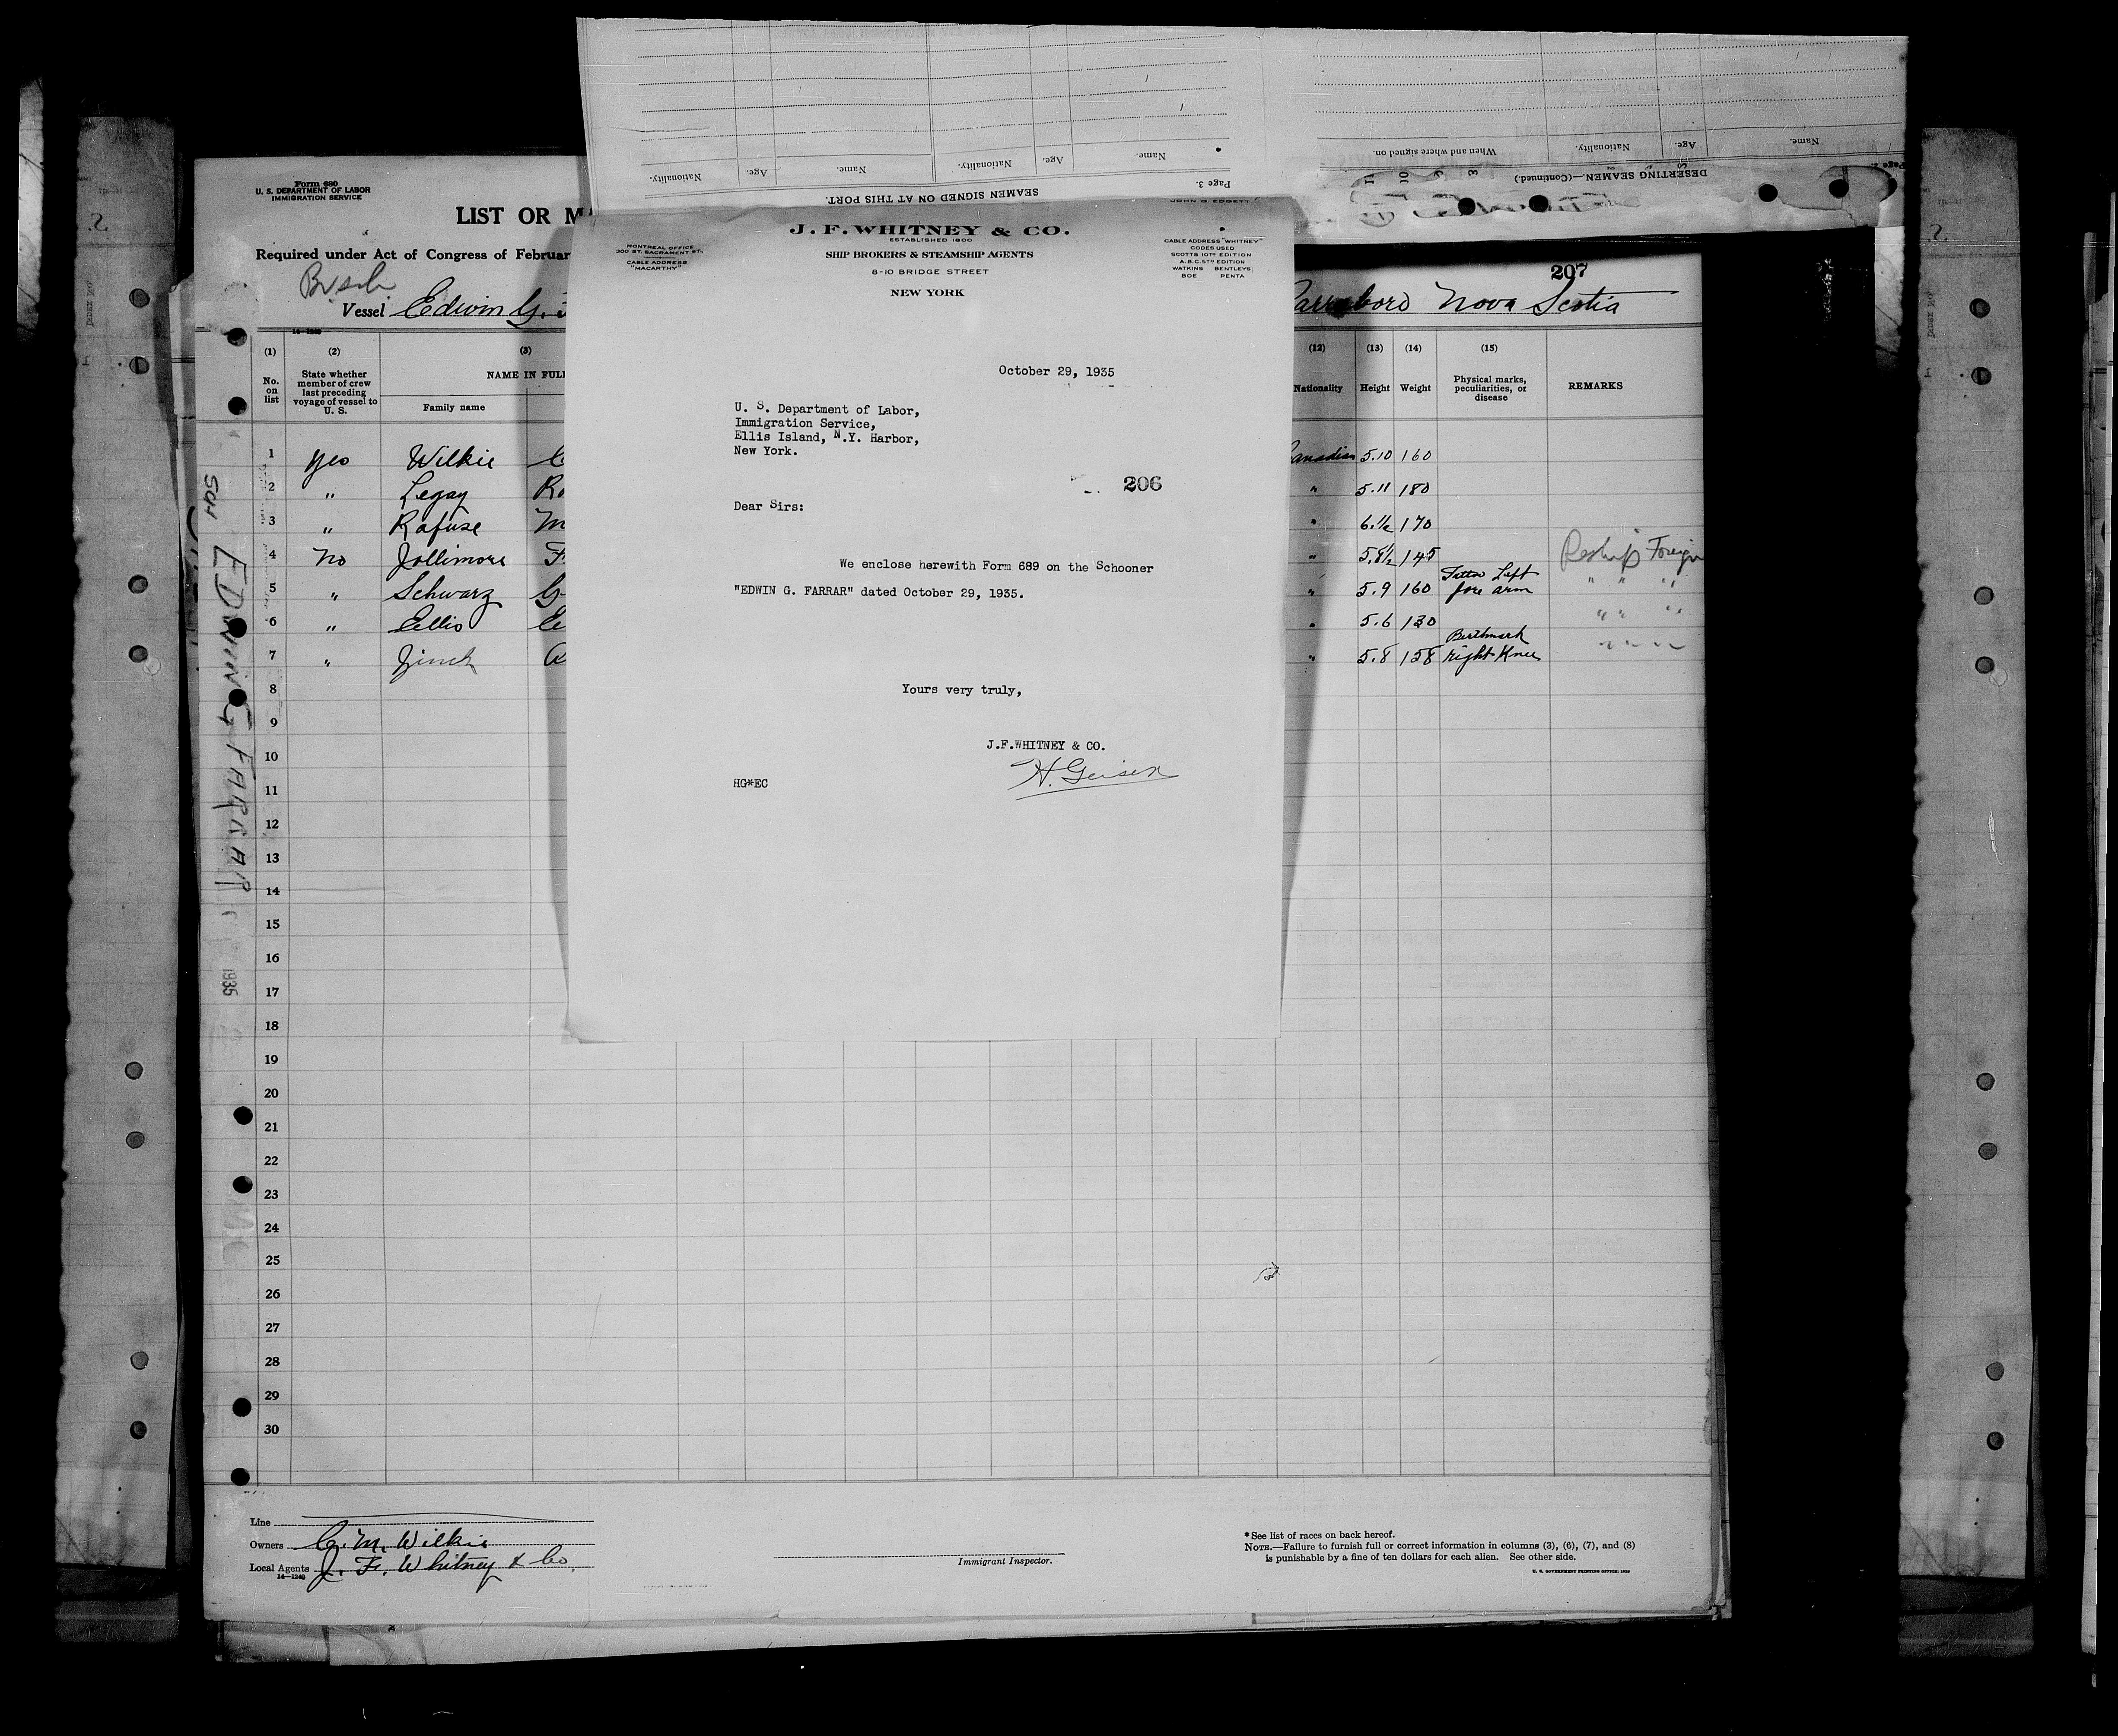 Page 3.
SEAMEN SIGNED ON AT THIS PORT.
Name.
Age.
Nationality.
Name.
Age.
Nationality.
DESERTING SEAMEN.—(Continued.)
Name.
Age.
Nationality.
When and where signed on.
Form 689
U. S. DEPARTMENT OF LABOR
IMMIGRATION SERVICE
LIST OR M
Required under Act of Congress of Februar
Vessel Edwin G.
Parrsboro Nova Scotia
207
14—1240
(1) (2) (3) (12) (13) (14) (15)
No. on list
State whether member of crew last preceding voyage of vessel to U. S.
NAME IN FULL
Family name
Nationality
Height
Weight
Physical marks, peculiarities, or disease
REMARKS
1 Yes Wilkie Canadian 5.10 160
2 " Legay " 5.11 180
3 " Rafuse " 6.1½ 170
4 No Jollimore " 5.8½ 145 Reship Foreign
5 " Schwarz " 5.9 160 Tattoo Left fore arm " " "
6 " Ellis " 5.6 130 " " "
7 " Zinck " 5.8 158 Birthmark right Knee " " "
8
9
10
11
12
13
14
15
16
17
18
19
20
21
22
23
24
25
26
27
28
29
30
SCH EDWIN G FARRAR
1935
JOHN G. EDGETT
J. F. WHITNEY & CO.
ESTABLISHED 1800
SHIP BROKERS & STEAMSHIP AGENTS
8-10 BRIDGE STREET
NEW YORK
MONTREAL OFFICE
300 ST. SACRAMENT ST.
CABLE ADDRESS
"MACARTHY"
CABLE ADDRESS "WHITNEY"
CODES USED
SCOTTS 10TH EDITION
A.B.C. 5TH EDITION
WATKINS BENTLEYS
BOE PENTA
October 29, 1935
U. S. Department of Labor,
Immigration Service,
Ellis Island, N.Y. Harbor,
New York.
206
Dear Sirs:
We enclose herewith Form 689 on the Schooner
"EDWIN G. FARRAR" dated October 29, 1935.
Yours very truly,
J.F.WHITNEY & CO.
H. Geisen
HG*EC
Line
Owners C. M. Wilkie
Local Agents J. F. Whitney & Co.
14—1240
Immigrant Inspector.
*See list of races on back hereof.
NOTE.—Failure to furnish full or correct information in columns (3), (6), (7), and (8)
is punishable by a fine of ten dollars for each alien. See other side.